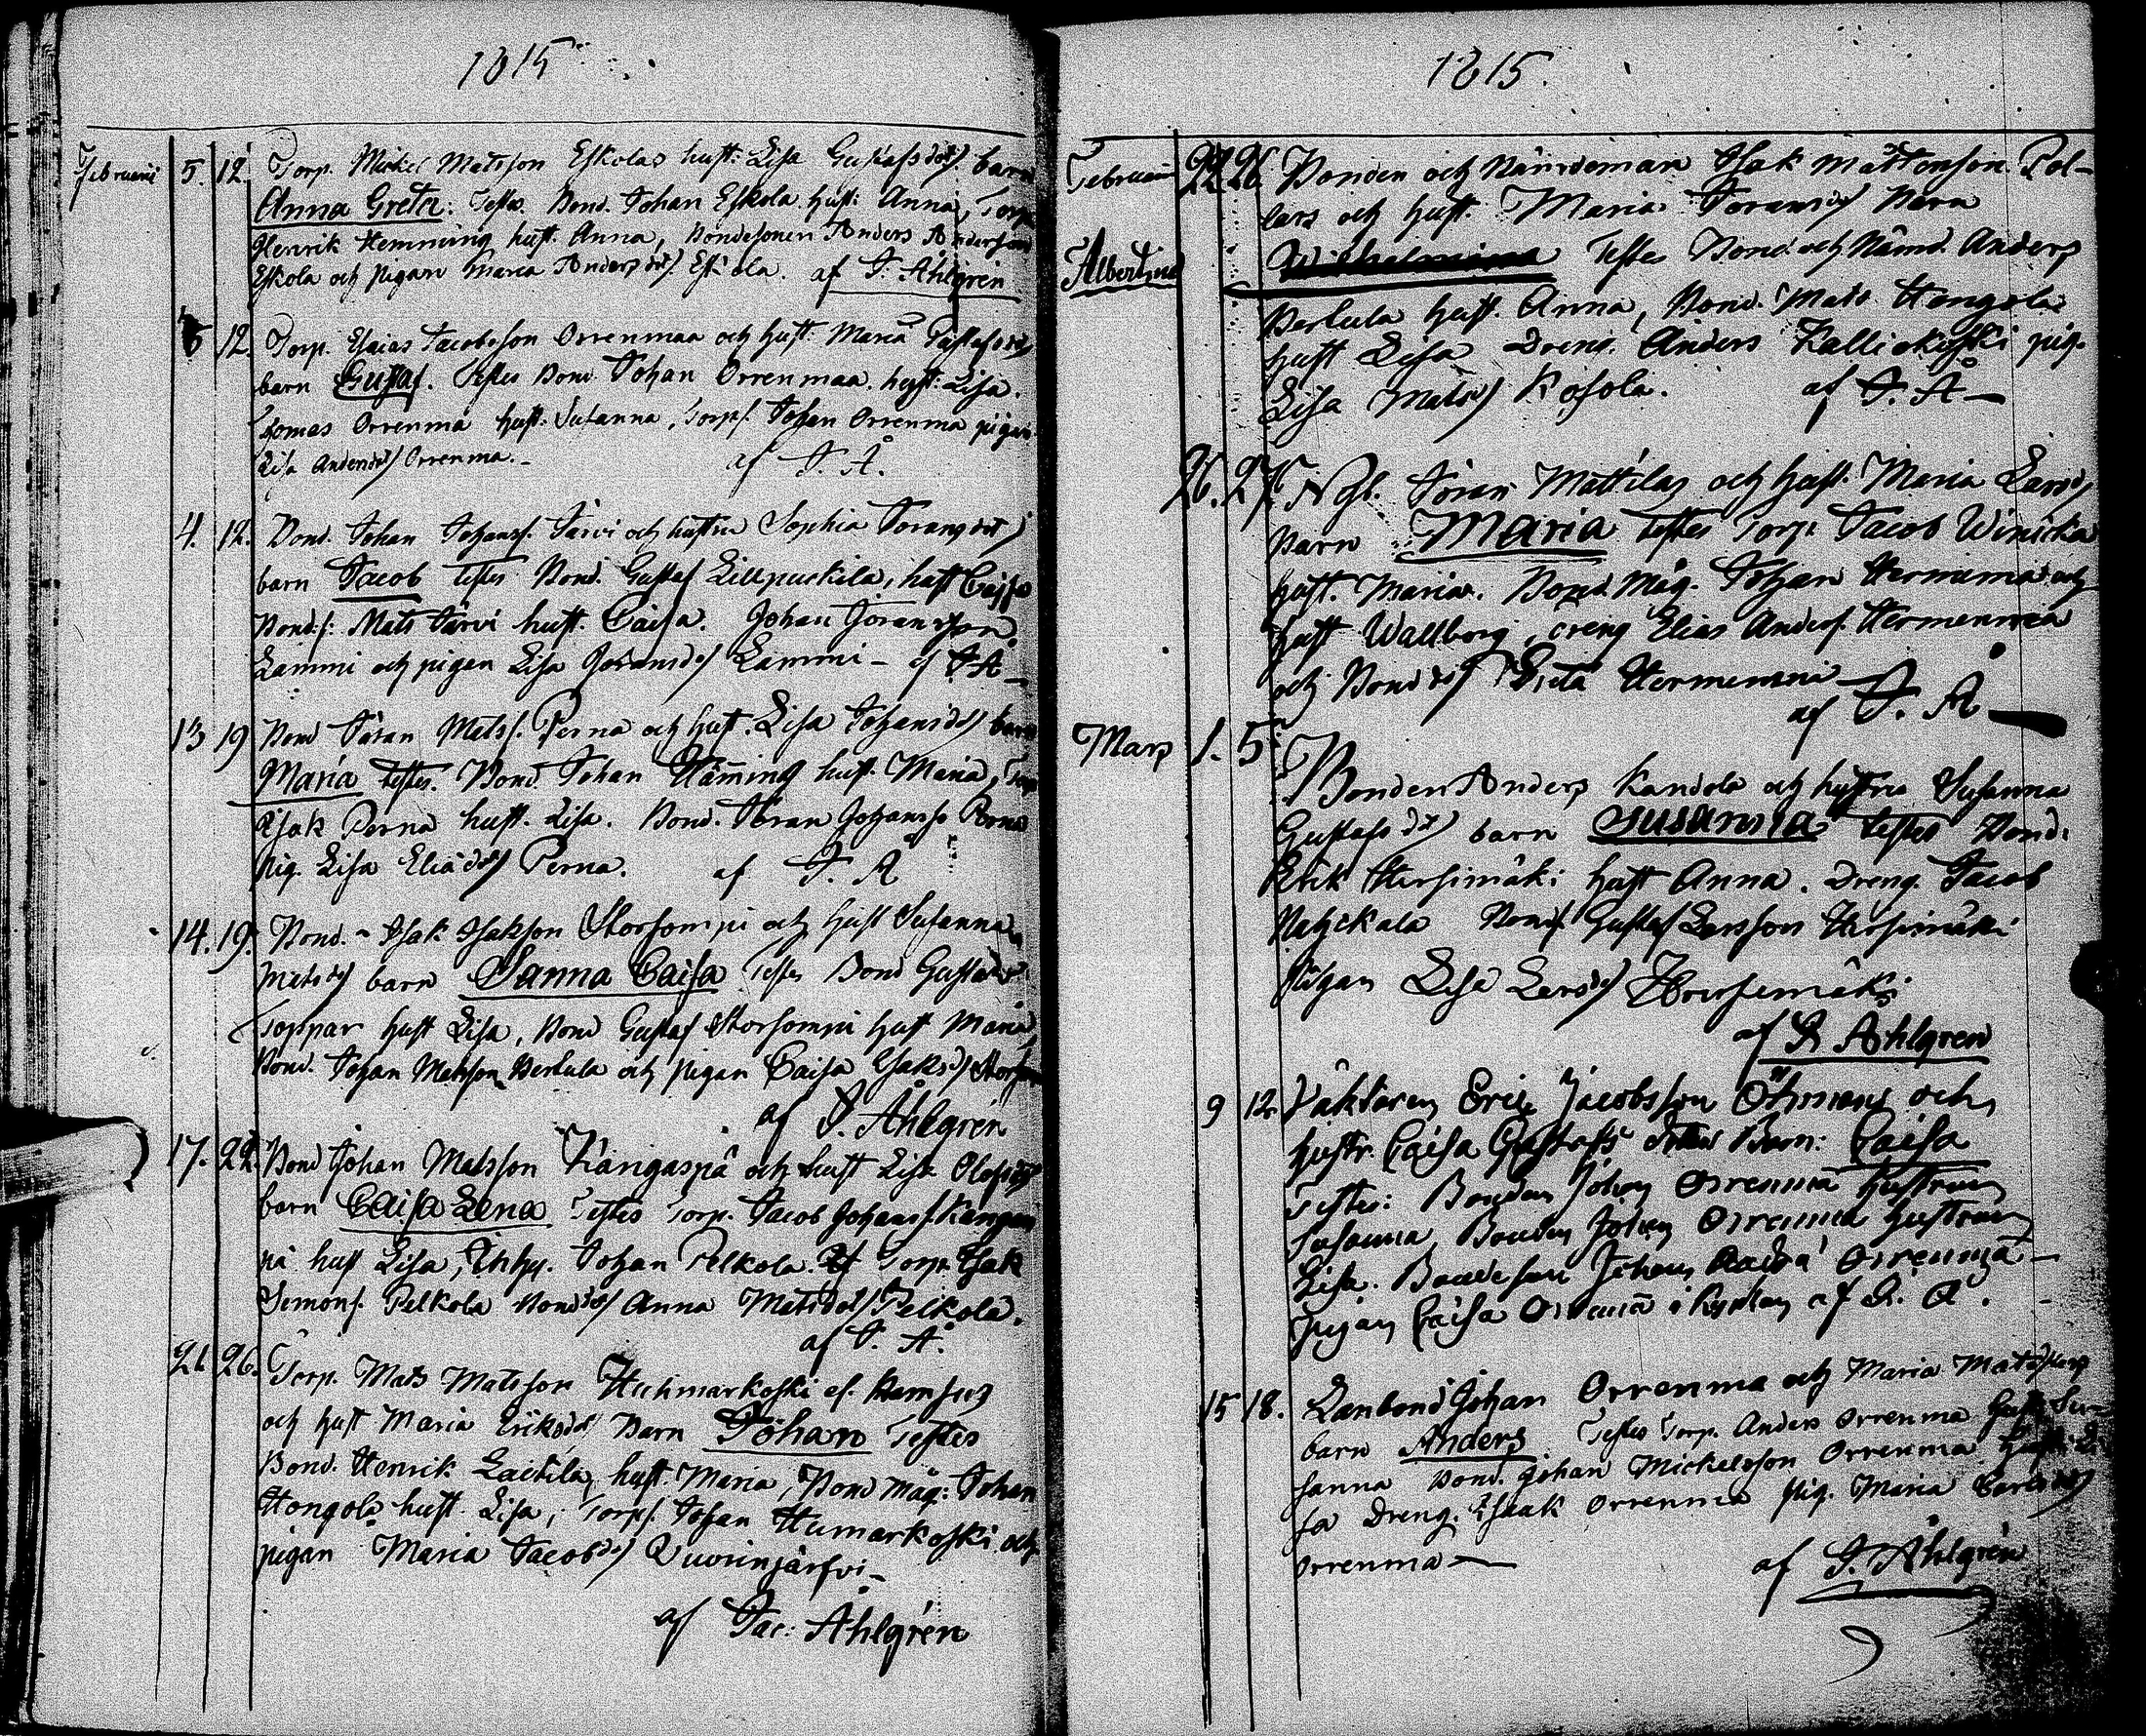 1815
Februarii 5. 12. Torp. Mickel Matsson Eskolas hust: Lisa Gustafsdot/ barn
Anna Greta: Testes. Bond. Johan Eskola hust: Anna, Torp
Henrik Hemming hust. Anna, Bondesonen Anders Andersson
Eskola och pigan Maria Andersdot/ Eskola. af J. Åhlgrén
5 12. Torp. Esaias Jacobsson Orrenmaa och hust: Maria
barn Gustaf. Testes Bond Johan Orrenmaa. hust: Lisa.
Tomas Orrenma hust: Susanna, Torps. Johan Orrenma pigan
Lisa Andersd/ Orrenma. _ af J. Å.
4. 12. Bond. Johan Johanss. Järvi och hustru Sophia Joransdot/
barn Jacob Testes Bond. Gustaf Lillpuckila, hust Cajsa
Bonds: Mats Järvi hust. Caisa. Johan Joransson
Lammi och pigan Lisa Joransd/ Lammi - af J. Å _
13 19 Bond Jöran Matss. Perna och hust. Lisa Johansd/ barn
Maria testes. Bond. Johan Häming hust. Maria, Torp
Isak Perna hust. Lisa. Bond. Jöran Johanss Perna
pig. Lisa Eliæd/ Perna. af J. Å
14. 19. Bond. Isak Isaksson Storsompi och hust Susanna
Matsd/ barn Sanna Caisa Testes Bond Gustaf
Toppar hust Lisa, Bond Gustaf Storsompi hust Maria
Bond. Johan Matsson Bertula och pigan Caisa Isaksd/
af J. Åhlgrén
17. 22. Bond Johan Matsson Kangaspä och hust Lisa Olofsd/
barn Caisa Lena Testes Torp. Jacob Johanss. Kangas
pä hust Lisa, Inhy. Johan Pelkola. Torp. Isak
Simons. Pelkola Bondd/ Anna Matsdot/ Pelkola.
af J. Å.
21 26. Torp. Mats Matsson Huhmarkoski
och hust Maria Eriksd/ Barn Johan Testes
Bond. Henrik Lackila, hust. Maria, Bond måg. Johan
Hongola hust. Lisa, Torps. Johan Humarkoski och
pigan Maria Jacobsd/ Quorinjärfvi_
af Jac: Åhlgrén
1815.
Februari 22 26 Bonden och Nämdeman Isak Mattsson Pol-
lars och hust. Maria Joransd/ Barn
Albertina Wilhelmina Testes Bond. och Nämd. Anders
Bertula hust. Anna, Bond. Mats Hongola
hust Lisa Dreng. Anders Kalliokoski pig.
Lisa Matsd/ Kosola. af J. Å _
26. 27. Nyb. Jöran Mattilas och hust. Maria Larsd/
Barn Maria testes Torp. Jacob Winicka
hust. Maria. Bond. Måg. Johan Hermanna och
hust Wallborg, dreng Elias Anders. Hermenmea
och Bondd/ Greta Hermenmi
af J. Å _
Mars 1. 5. Bonden Anders Kandola och hustru Susanna
Gustafs dot/ barn Susanna testes Bond.
Erik Hirsimäki hust Anna. Dreng. Jacob
Bonds. Gustaf Larsson Hirsimäki
Pigan Lisa Larsd/ Hirsimäki
af J. Åhlgren
9 12. Väktaren Eric Jacobsson Öhman och
hustr. Caisa Gustafs dotter Barn: Caisa
Testes: Bonden Johan Orrenmä hustrun
Susanna, Bonden Johan Orrenma hustrun
Lisa. Bondeson Johan Orrenmä _
Pigan Caisa Orrenmä af J. Å.
15 18. Lanbond Johan Orrenma och Maria
barn Anders Testes Torp. Anders Orrenma hust. Su-
sanna Bond. Johan Mickelsson Orrenma hust. Li
sa Dreng. Isaak Orrenma Pig. Maria Carlsd/
Orrenma _ af J. Åhlgrén